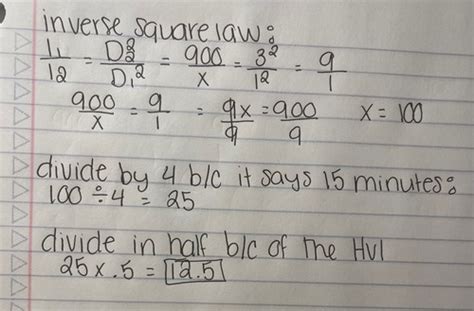 inverse square law:
I1/I2 = D2²/D1² = 900/x = 3²/1² = 9/1
900/x = 9/1 = 9x/9 = 900/9 x = 100
divide by 4 b/c it says 15 minutes:
100 ÷ 4 = 25
divide in half b/c of the Hvl
25 x .5 = 12.5